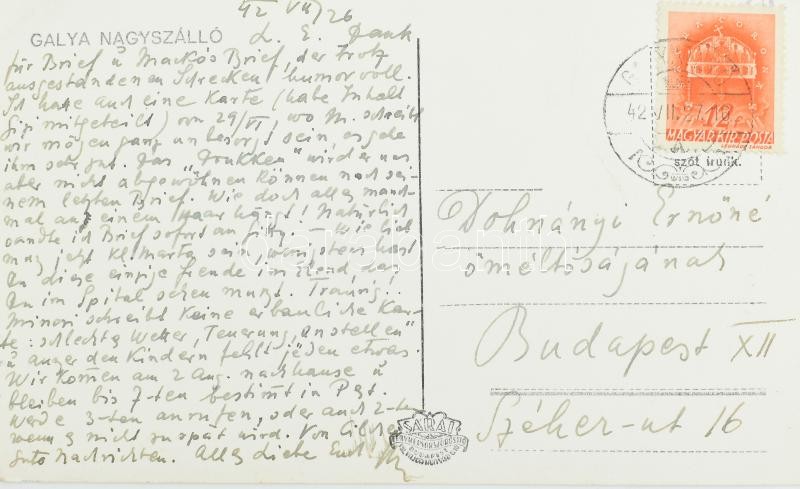 42 VII/26
GALYA NAGYSZÁLLÓ L. E. Dank
für Brief u Mackós Brief, der trotz
ausgestandenen Schrecken humorvoll.
Ich hatte auch eine Karte (habe Inhalt
mitgeteilt) von 29/VI, wo M. schreibt
wir mögen ganz unbesorgt sein es gehe
ihm sehr gut. Das "Doukken" wird er uns
aber nicht abgewöhnen können nach sei-
nem letzten Brief. Wie doch alles manch-
mal an einem Haar hängt! Natürlich
sandte ich Brief sofort an – Wie lieb
mag jetzt kl. Marta sein, wenigstens hast
Du diese einzige Freude im Elend, das
Du im Spital sehen musst. Traurig..
Minori schreibt keine erbauliche Kar-
te: schlechtes Wetter, Teuerung, "anstellen"
u ausser den Kindern fehlt jeden etwas.
Wir kommen am 2 Aug. nachhause u
bleiben bis 7-ten bestimmt in Pest.
Werde 3-ten anrufen, oder auch 2-ten
wenn es nicht zu spät wird. Von
gute Nachrichten. Alles Liebe Euch
KORONA
12 f
MAGYAR KIR. POSTA
LEGRÁDY SÁNDOR
42 VII. 27. 18
szót írunk.
Dohnányi Ernőné
őméltóságának
Budapest XII
Széher-ut 16
darabanth
BARAT
BUDAPEST